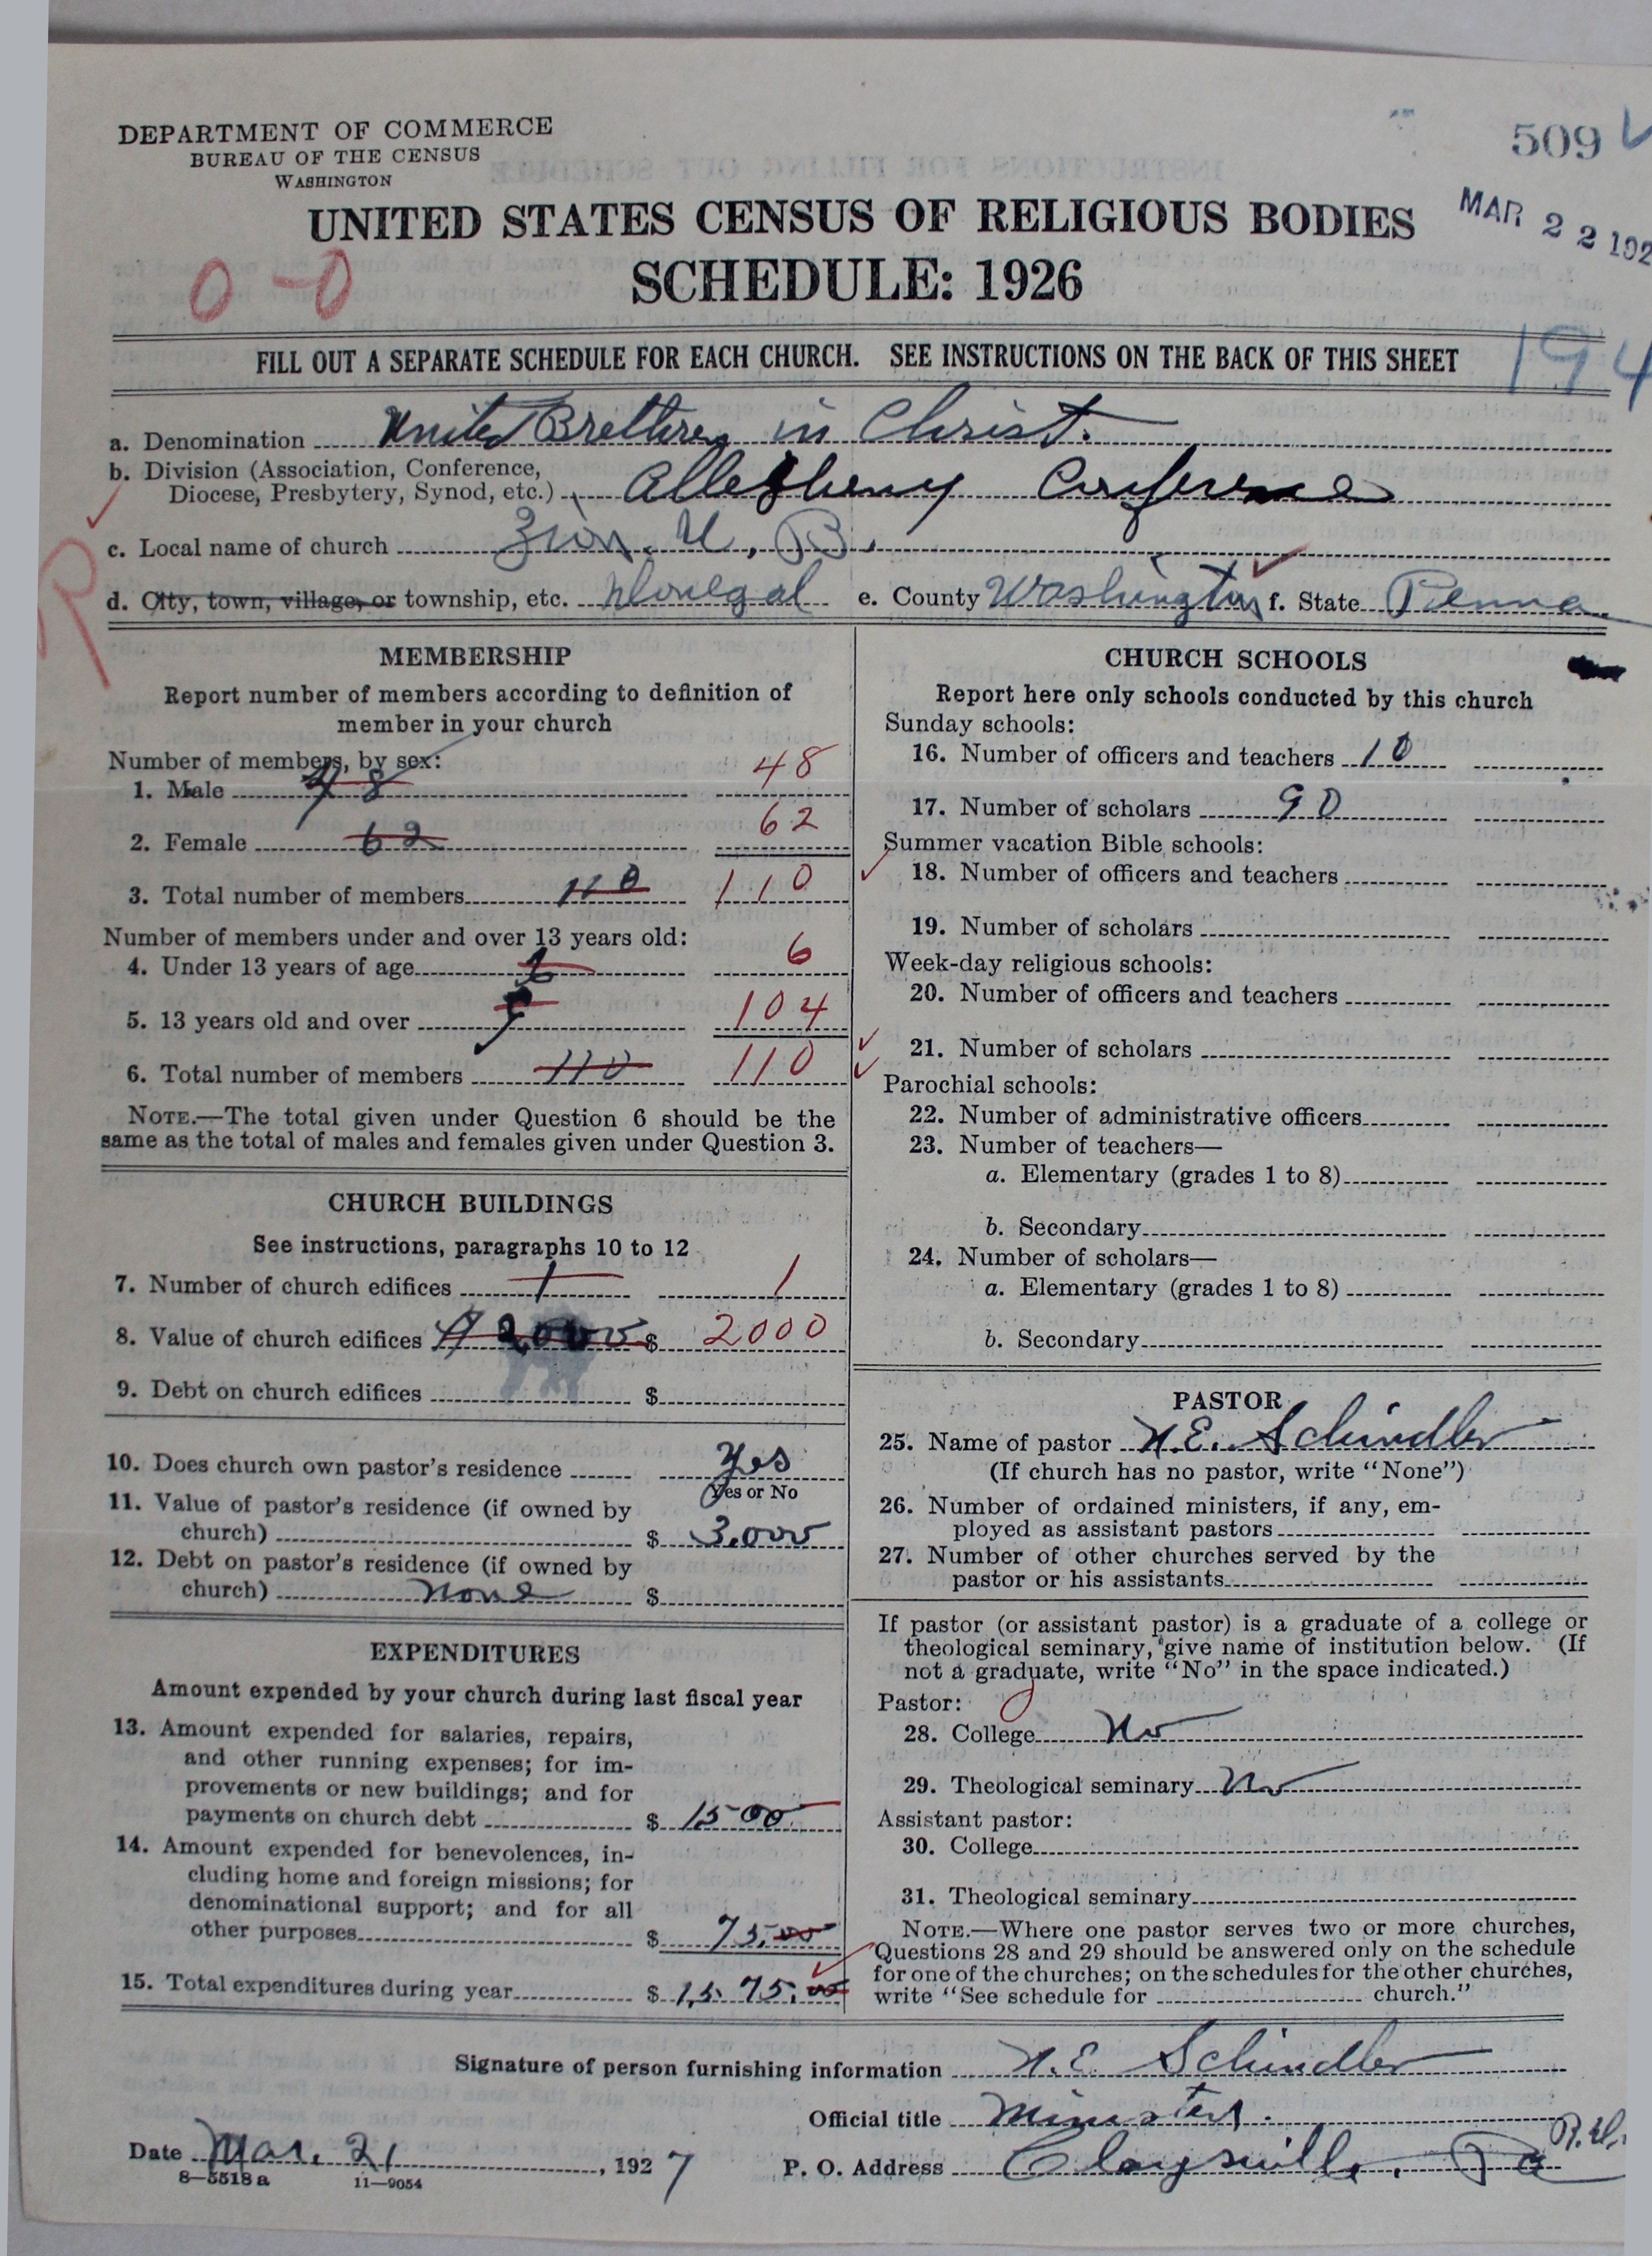 DEPARTMENT OF COMMERCE
BUREAU OF THE CENSUS
WASHINGTON
509
MAR 22 192
UNITED STATES CENSUS OF RELIGIOUS BODIES
SCHEDULE: 1926
0-0
194
FILL OUT A SEPARATE SCHEDULE FOR EACH CHURCH. SEE INSTRUCTIONS ON THE BACK OF THIS SHEET
a. Denomination United Brethren in Christ.
b. Division (Association, Conference,
Diocese, Presbytery, Synod, etc.) Allegheny Conference
c. Local name of church Zion. U, B.
R
d. City, town, village, or township, etc. Donegal e. County Washington f. State Penna
MEMBERSHIP
Report number of members according to definition of
member in your church
Number of members, by sex:
1. Male 48 48
2. Female 62 62
3. Total number of members 110 110
Number of members under and over 13 years old:
4. Under 13 years of age 6 6
5. 13 years old and over 104
6. Total number of members 110 110
NOTE.—The total given under Question 6 should be the
same as the total of males and females given under Question 3.
CHURCH BUILDINGS
See instructions, paragraphs 10 to 12
7. Number of church edifices 1 1
8. Value of church edifices $ 2000
9. Debt on church edifices $
10. Does church own pastor's residence Yes
Yes or No
11. Value of pastor's residence (if owned by
church) $ 3,000
12. Debt on pastor's residence (if owned by
church) none $
EXPENDITURES
Amount expended by your church during last fiscal year
13. Amount expended for salaries, repairs,
and other running expenses; for im-
provements or new buildings; and for
payments on church debt $ 1500
14. Amount expended for benevolences, in-
cluding home and foreign missions; for
denominational support; and for all
other purposes $ 75.00
15. Total expenditures during year $ 1,575.00
CHURCH SCHOOLS
Report here only schools conducted by this church
Sunday schools:
16. Number of officers and teachers 10
17. Number of scholars 90
Summer vacation Bible schools:
18. Number of officers and teachers
19. Number of scholars
Week-day religious schools:
20. Number of officers and teachers
21. Number of scholars
Parochial schools:
22. Number of administrative officers
23. Number of teachers—
a. Elementary (grades 1 to 8)
b. Secondary
24. Number of scholars—
a. Elementary (grades 1 to 8)
b. Secondary
PASTOR
25. Name of pastor N.E. Schindler
(If church has no pastor, write "None")
26. Number of ordained ministers, if any, em-
ployed as assistant pastors
27. Number of other churches served by the
pastor or his assistants
If pastor (or assistant pastor) is a graduate of a college or
theological seminary, give name of institution below. (If
not a graduate, write "No" in the space indicated.)
Pastor:
28. College No
29. Theological seminary No
Assistant pastor:
30. College
31. Theological seminary
NOTE.—Where one pastor serves two or more churches,
Questions 28 and 29 should be answered only on the schedule
for one of the churches; on the schedules for the other churches,
write "See schedule for church."
Signature of person furnishing information N.E. Schindler
Official title Minister.
Date Mar. 21, 1927 P. O. Address Claysville, Pa
8—5518 a 11—9054